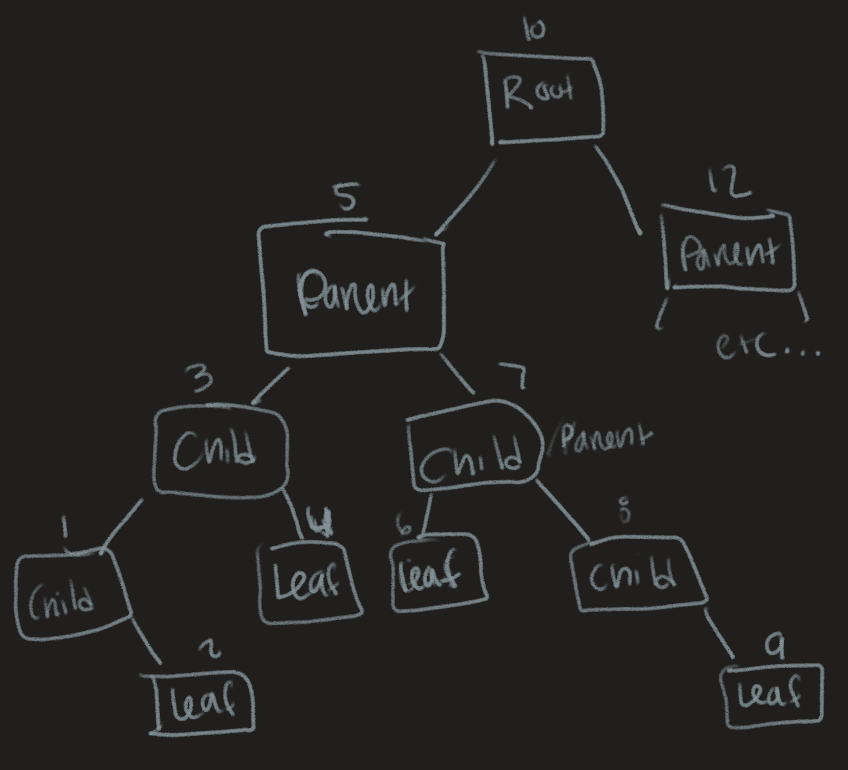 10
Root
5
12
Parent
Parent
etc...
3
7
Child
Child
/Parent
1
4
6
8
Child
Leaf
leaf
Child
2
9
leaf
leaf